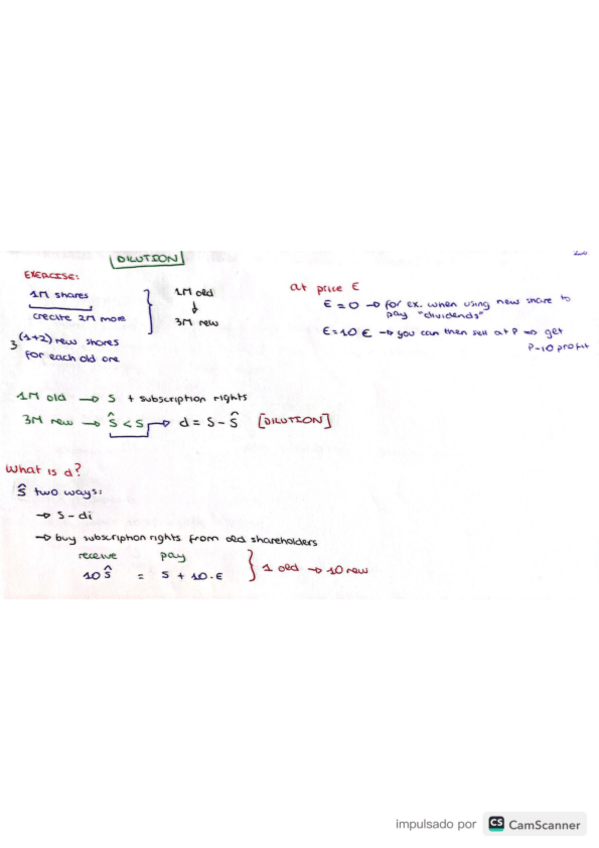 DILUTION
EXERCISE:
1M shares
create 2M more
3 (1+2) new shares
for each old one
1M old
↓
3M new
at price E
E=0 → for ex. when using new share to
pay "dividends"
E=10 € → you can then sell at P ⇒ get
P-10 profit
1M old → S + subscription rights
3M new → Ŝ < S → d = S - Ŝ [DILUTION]
What is d?
Ŝ two ways:
→ S - di
→ buy subscription rights from old shareholders
receive pay
10 Ŝ = S + 10·E } 1 old → 10 new
impulsado por CS CamScanner